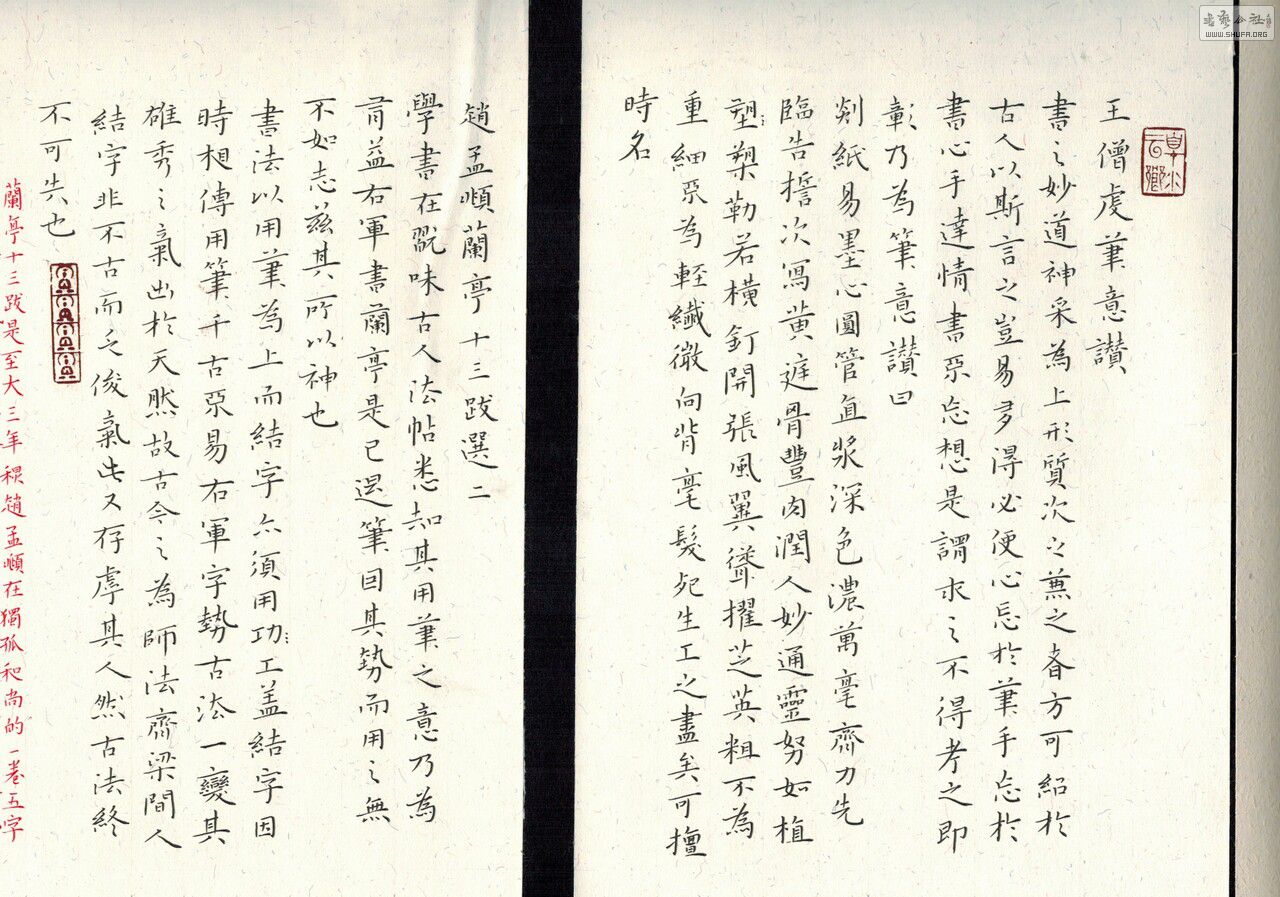 王僧虔筆意讚
書之妙道神采為上形質次之兼之者方可紹於
古人以斯言之豈易多得必使心忘於筆手忘於
書心手達情書不忘想是謂求之不得考之即
彰乃為筆意讚曰
剡紙易墨心圓管直漿深色濃萬毫齊力先
臨告誓次寫黃庭骨豐肉潤入妙通靈努如植
塑槊勒若橫釘開張鳳翼聳擢芝英粗不為
重細不為輕纖微向背毫髮死生工之盡矣可擅
時名
趙孟頫蘭亭十三跋選二
學書在翫味古人法帖悉知其用筆之意乃為
有益右軍書蘭亭是已退筆因其勢而用之無
不如志茲其所以神也
書法以用筆為上而結字亦須用功工蓋結字因
時相傳用筆千古不易右軍字勢古法一變其
雄秀之氣出於天然故古今之為師法齊梁間人
結字非不古而乏俊氣此又存虖其人然古法終
不可失也
蘭亭十三跋是至大三年 趙孟頫在獨孤和尚的一卷五字
書藝公社
WWW.SHUFA.ORG